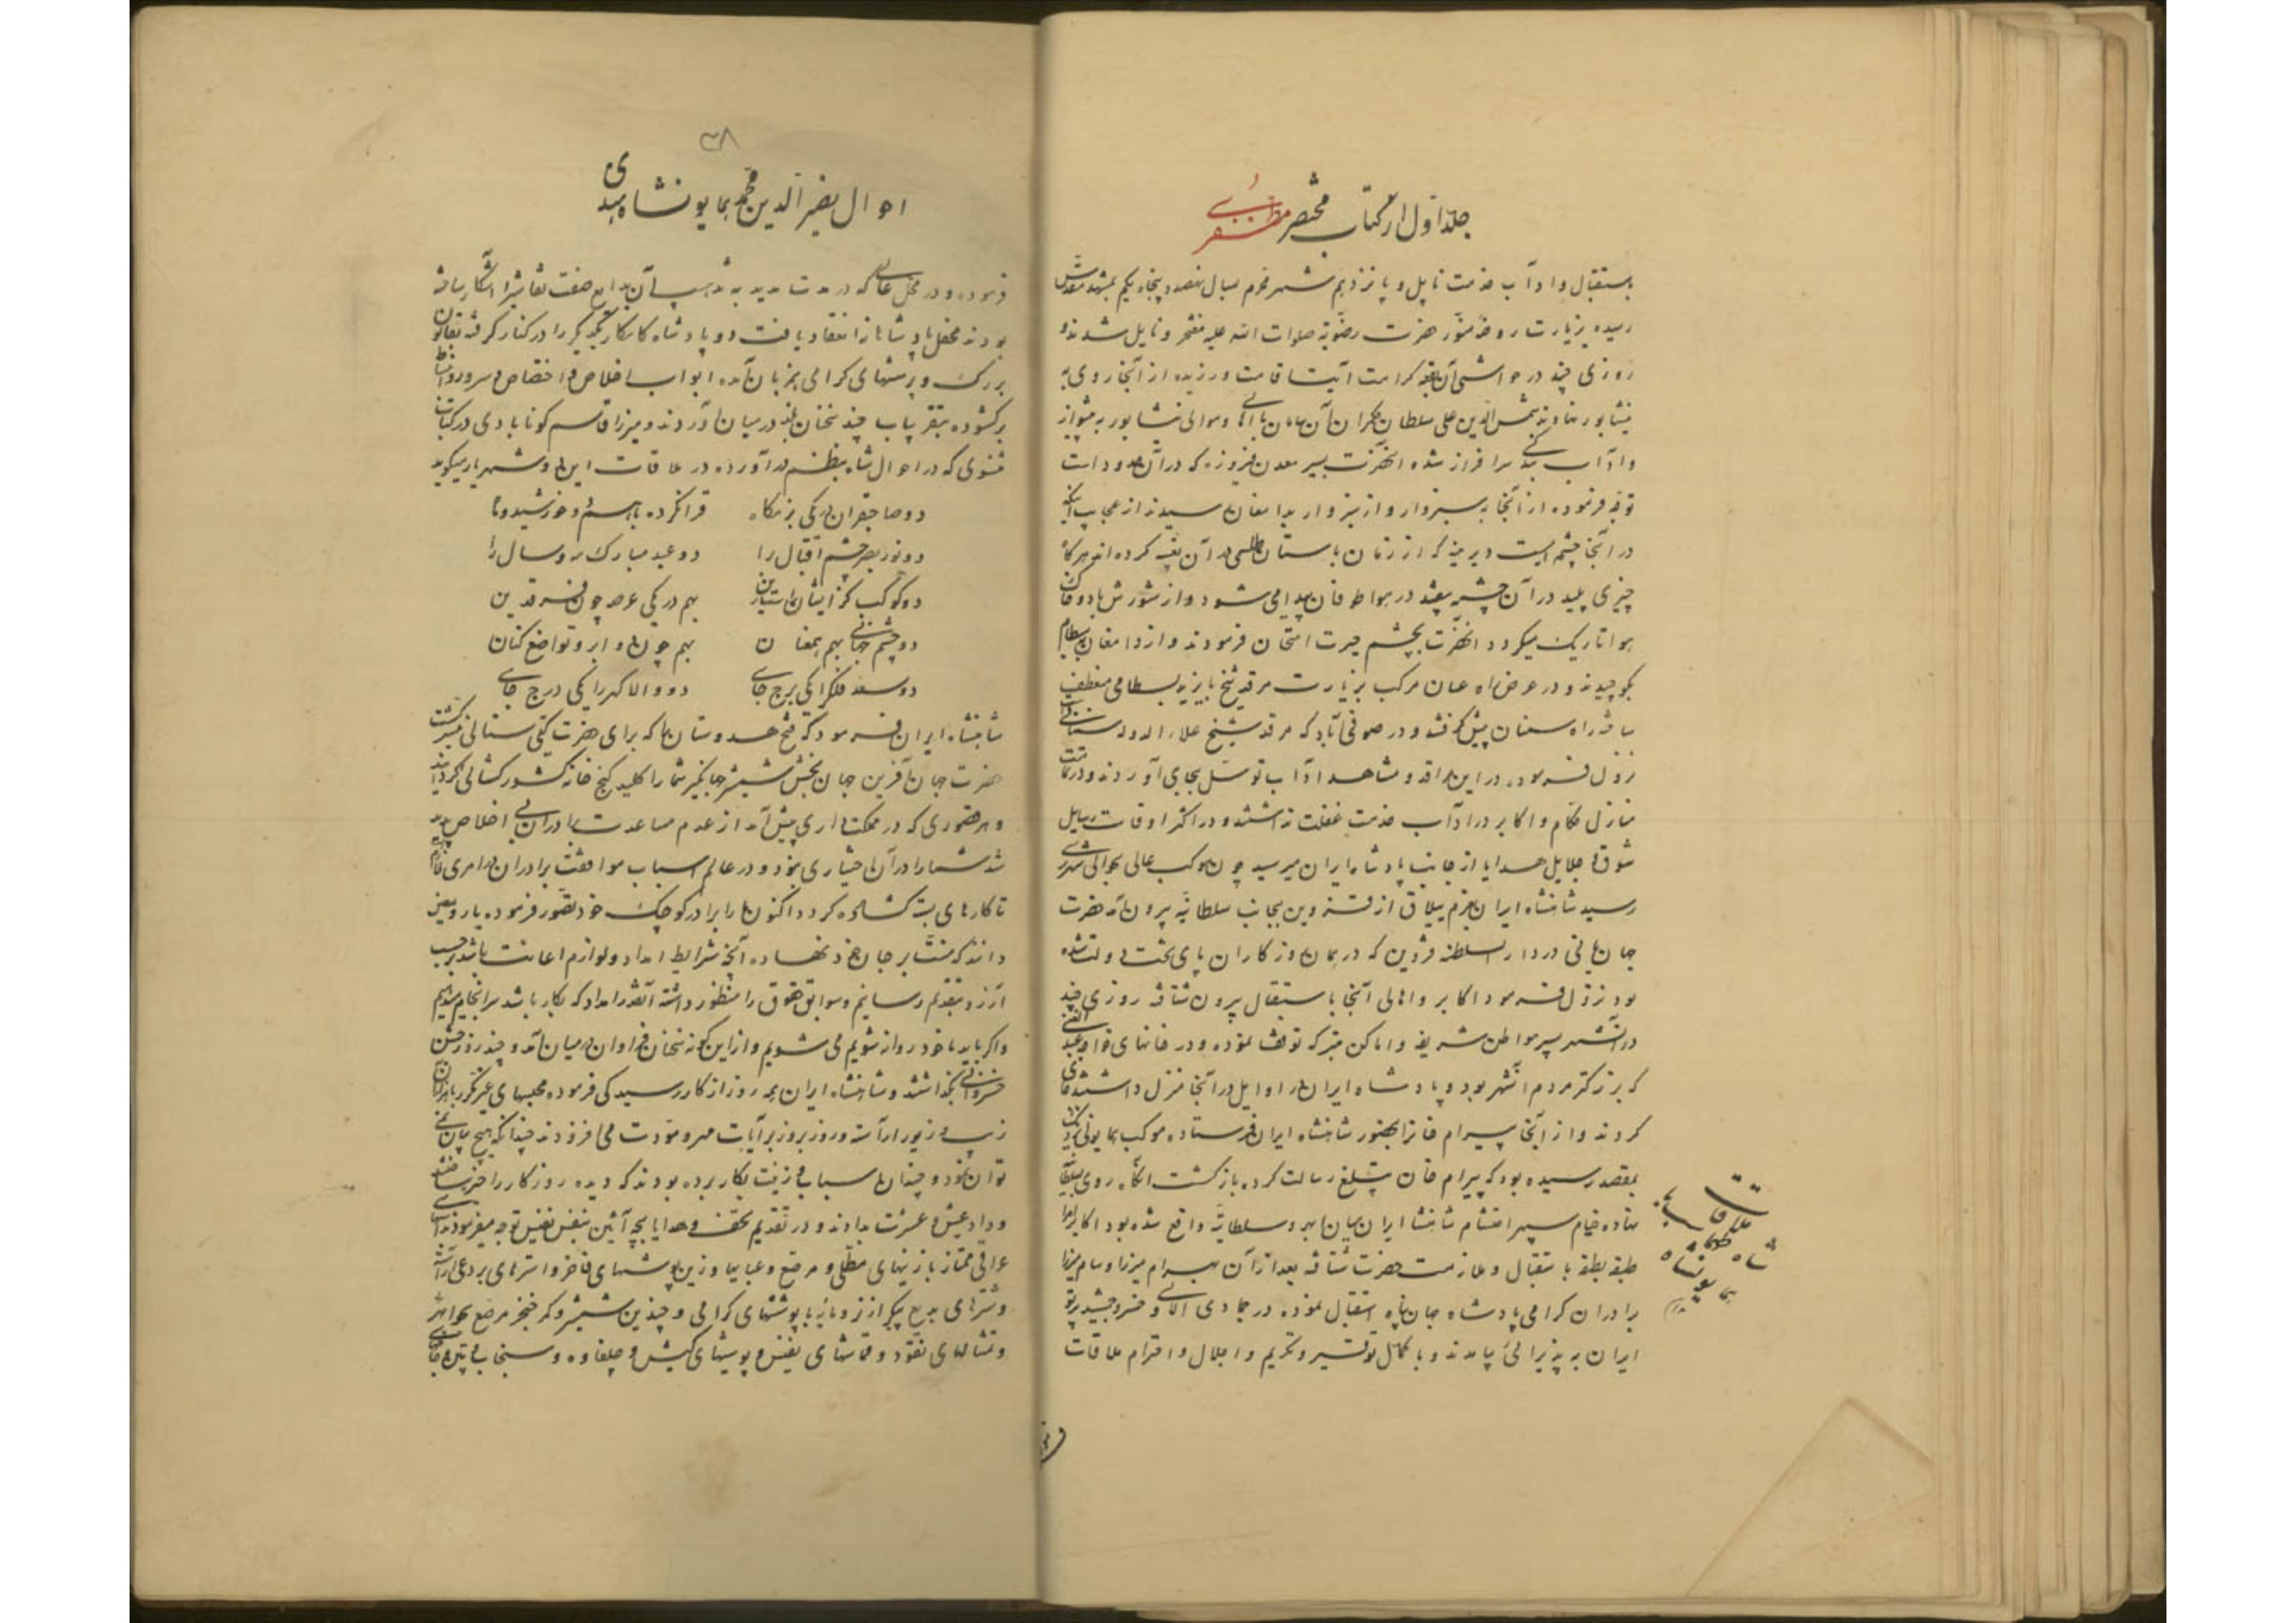 جلد اول از کتاب مختصر مظفری
باستقبال و آداب خدمت نایل و پانزدهم شهر محرم سال نهصد و پنجاه و یکم بمشهد مقدس
رسیده بزیارت روضه منور حضرت رضویة صلوات الله علیه مفتخر و نایل شدند و
روزی چند در حواشی آن بقعه کرامت آیت اقامت ورزیده از آنجا روی به
نیشابور نهادند شمس الدین علی سلطان حکمران آن سامان با اهالی و موالی نیشابور به پیشواز
و آداب بندگی سرافراز شده آنحضرت بسیر معدن فیروزه که در آن حدود است
توجه فرموده از آنجا به سبزوار و از سبزوار بدامغان رسیدند از عجایب اینکه
در آنجا چشمه ایست دیرینه که از زمان باستان طلسمی در آن تعبیه کرده اند هرگاه
چیزی پلید در آن چشمه بیفتد در هوا طوفان پیدا می شود و از شورش باد و خاک
هوا تاریک میگردد آنحضرت بچشم حیرت امتحان فرمودند و از دامغان ببسطام
بکوچیدند و در عرض راه عنان مرکب بزیارت مرقد شیخ بایزید بسطامی منعطف
ساخته راه سمنان پیش گرفتند و در صوفی آباد که مرقد شیخ علاء الدوله سمنانی است
نزول فرموده در این مراقد و مشاهد آداب توسل بجای آوردند و در تمامت
منازل حکام و اکابر در آداب خدمت غفلت نداشتند و در اکثر اوقات رسایل
شوق و جلایل هدایا از جانب پادشاه ایران میرسید چون موکب عالی بحوالی شهر ری
رسید شاهنشاه ایران بعزم ییلاق از قزوین بجانب سلطانیه بیرون آمد حضرت
جهانبانی در دار السلطنه قزوین که در همان روزکاران پای تخت دولت شده
بود نزول فرمود اکابر و اهالی آنجا باستقبال بیرون شتافته روزی چند
در آنشهر بسیر مواطن شریفه و اماکن متبرکه توقف نموده و در خانهای خواجه عبد الغنی
که بزرکتر مردم آنشهر بود و پادشاه ایران در اوایل در آنجا منزل داشتند جای
کردند و از آنجا بیرام خان را بحضور شاهنشاه ایران فرستاده موکب همایونی نزدیک
بمقصد رسیده بود که بیرام خان تبلیغ رسالت کرده بازگشت آنگاه روی بسلطانیه
نهاده خیام سپهر احتشام شاهنشاه ایران میان ابهر و سلطانیه واقع شده بود اکابر امرا
طبقه بطبقه باستقبال و ملازمت حضرت شتافته بعد از آن بهرام میرزا و سام میرزا
برادران کرامی پادشاه جهان پناه استقبال نموده در جمادی الاولی خسرو جمشید پرتو
ایران به پذیرائی بیامدند و با کمال توقیر و تکریم و اجلال و احترام ملاقات
ملاقات
شاه طهماسب با
همایونشاه
هندی
۳۸
احوال نصیر الدین محمد همایونشاه هندی
فرموده و در محفل عالی که در مدت مدید به تذهیب آن بدایع صفت نقاشیرا آشکار ساخته
بودند محفل پادشاهانه انعقاد یافت دو پادشاه کامکار یکدیگر را در کنار گرفته بقانون
بزرک و پرسشهای کرامی همزبان آمده ابواب اخلاص و اختصاص و سرور و انبساط
برگشوده بتقریب چند سخنان بلند در میان آوردند و میرزا قاسم گونابادی در کتاب
مثنوی که در احوال شاه بنظم درآورده در ملاقات این دو شهریار میگوید
دو صاحبقران در یکی بزمگاه قران کرده با هم چو خورشید و ماه
دو نور بصر چشم اقبال را دو عید مبارک مه و سال را
دو کوکب کز ایشان فلک راست زین بهم در یکی عرصه چون فرقدین
دو چشم جهانی بهم همعنان بهم چون دو ابرو تواضع کنان
دو سعد فلک را یکی برج جای دو والا گهر را یکی درج جای
شاهنشاه ایران فرمود که فتح هندوستان ها که برای حضرت گیتی ستانی میسر گشت
حضرت جهان آفرین جهان بخش شمشیر جهانگیر شما را کلید گنج خانه کشورگشائی گردانید
و هر قصوری که در مملکت داری پیش آمد از عدم مساعدت برادران بی اخلاص پدید
شد شما را در آن اختیاری نبود و در عالم اسباب موافقت برادران امری لازم
تا کارهای بسته گشاده گردد اکنون ما را برادر کوچک خود تصور فرموده یار و معین
دانند که منت بر جان خود نهاده آنچه شرایط امداد و لوازم اعانت باشد برحسب
آرزو بتقدیم رسانیم و سوابق حقوق را منظور داشته آنقدر امداد که بکار باشد سرانجام میدهیم
و اگر باید با خود روانه شویم می شویم و از این گونه سخنان فراوان در میان آمد و چند روز جشن
خسروانی بگذاشتند و شاهنشاه ایران همه روز از کار رسیدگی فرموده مجلسهای غیر مکرر
زیب و زیور آراسته و روز بروز بر آیات مهر و مودت می افزودند چندانکه هیچ بیان نمی
توان نمود و چندان اسباب زینت بکار برده بودند که دیده روزگار را خیره ساختند
و داد عیش و عشرت بدادند و در تقدیم تحف و هدایا بچه آئین بنفس نفیس توجه میفرمودند اسبهای
عراقی ممتاز با زینهای مطلی و مرصع و عبایها و زین پوشهای فاخر و استرهای بردعی
و شترهای بدیع پیکر از نر و ماده با پوششهای گرامی و چندین شمشیر و کمر خنجر مرصع بجواهر
و تنگهای نقود و قماشهای نفیس و پوستهای کیش و جلغاوه و سنجاب